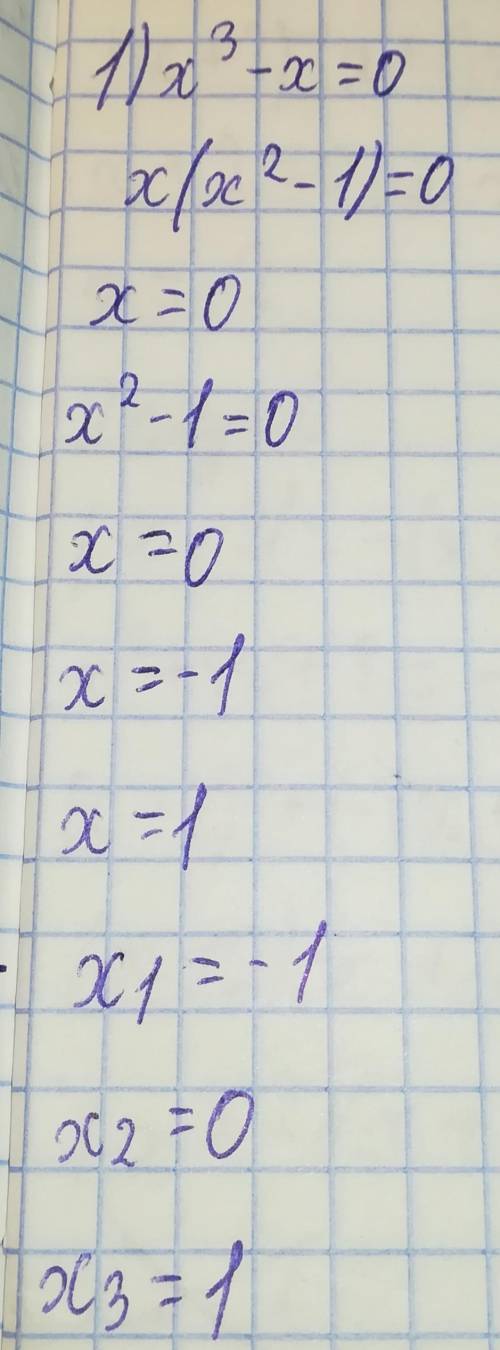 1) x³ - x = 0
x(x² - 1) = 0
x = 0
x² - 1 = 0
x = 0
x = -1
x = 1
x₁ = -1
x₂ = 0
x₃ = 1